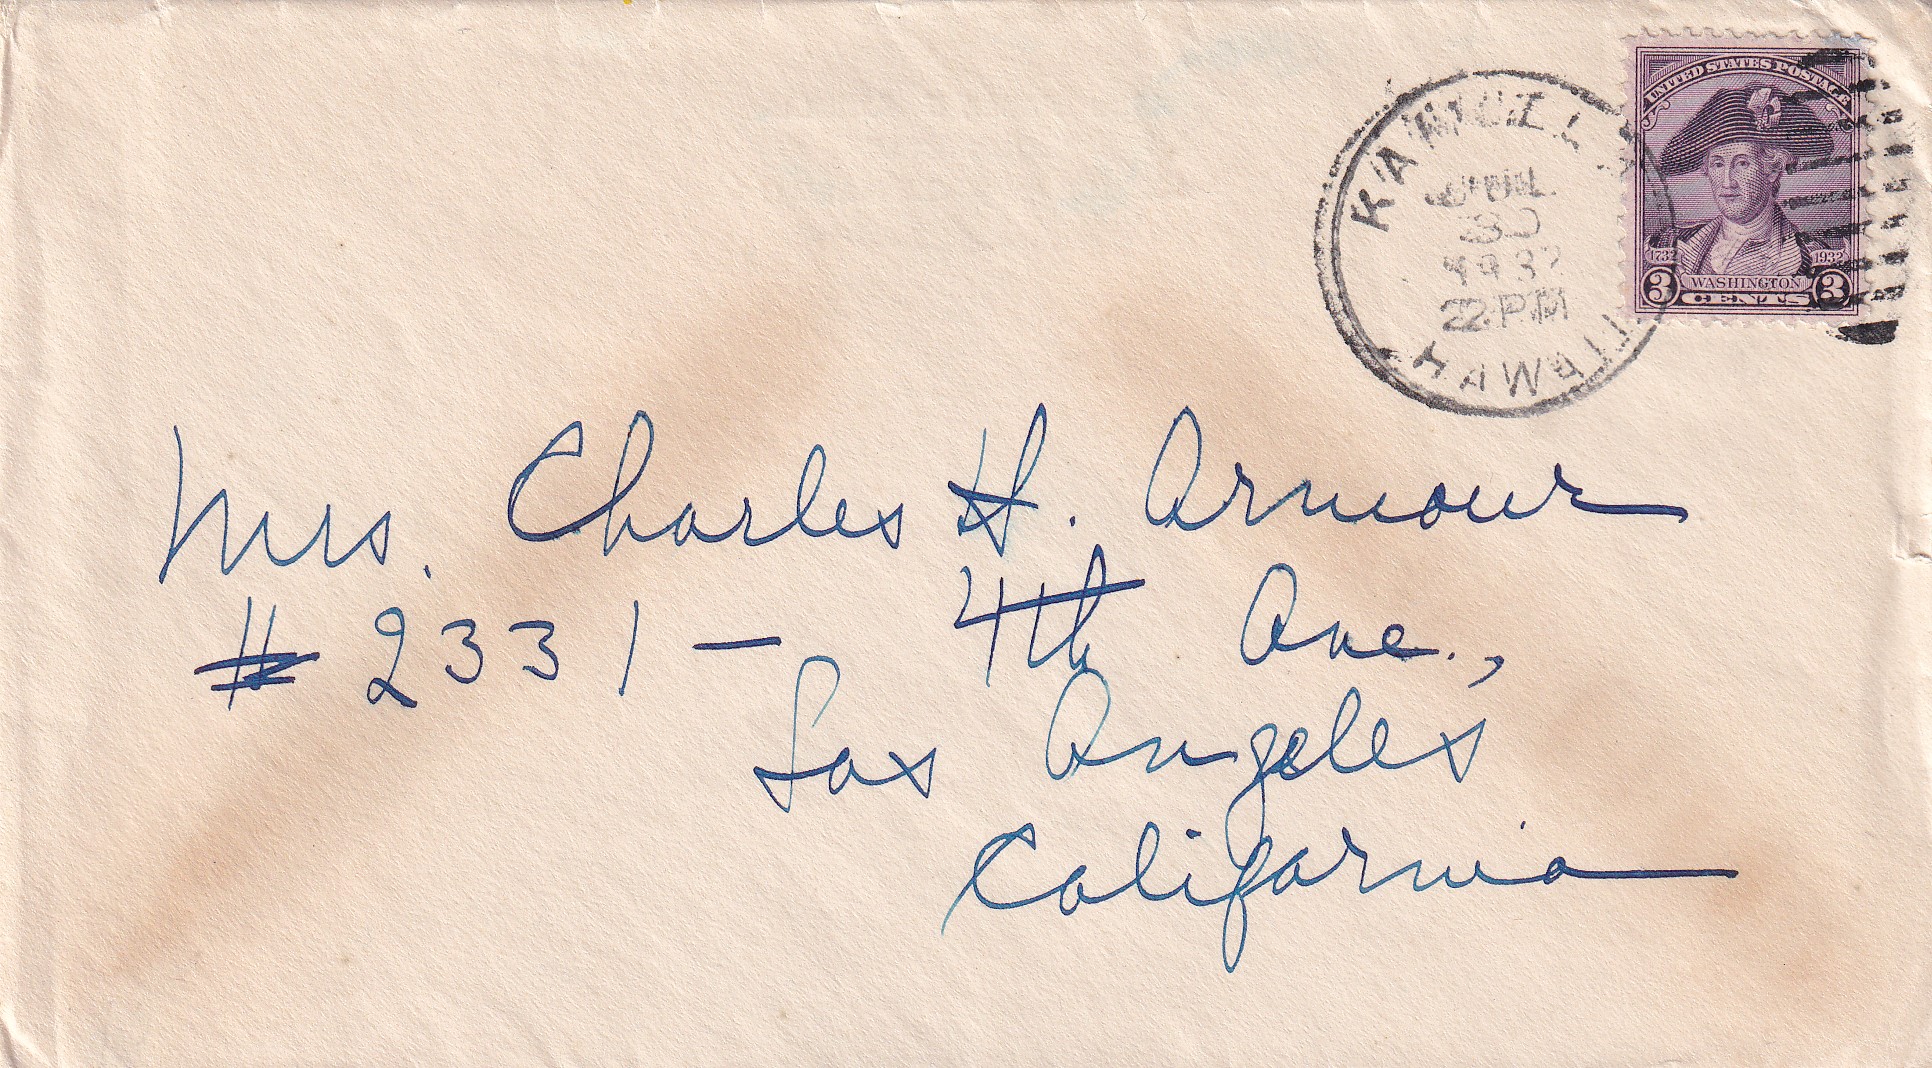 UNITED STATES POSTAGE
1732 1932
WASHINGTON
3 CENTS 3
KAMUELA
JUL
30
PM
HAWAII
Mrs. Charles H. Armour
# 2331 – 4th Ave.,
Los Angeles
California